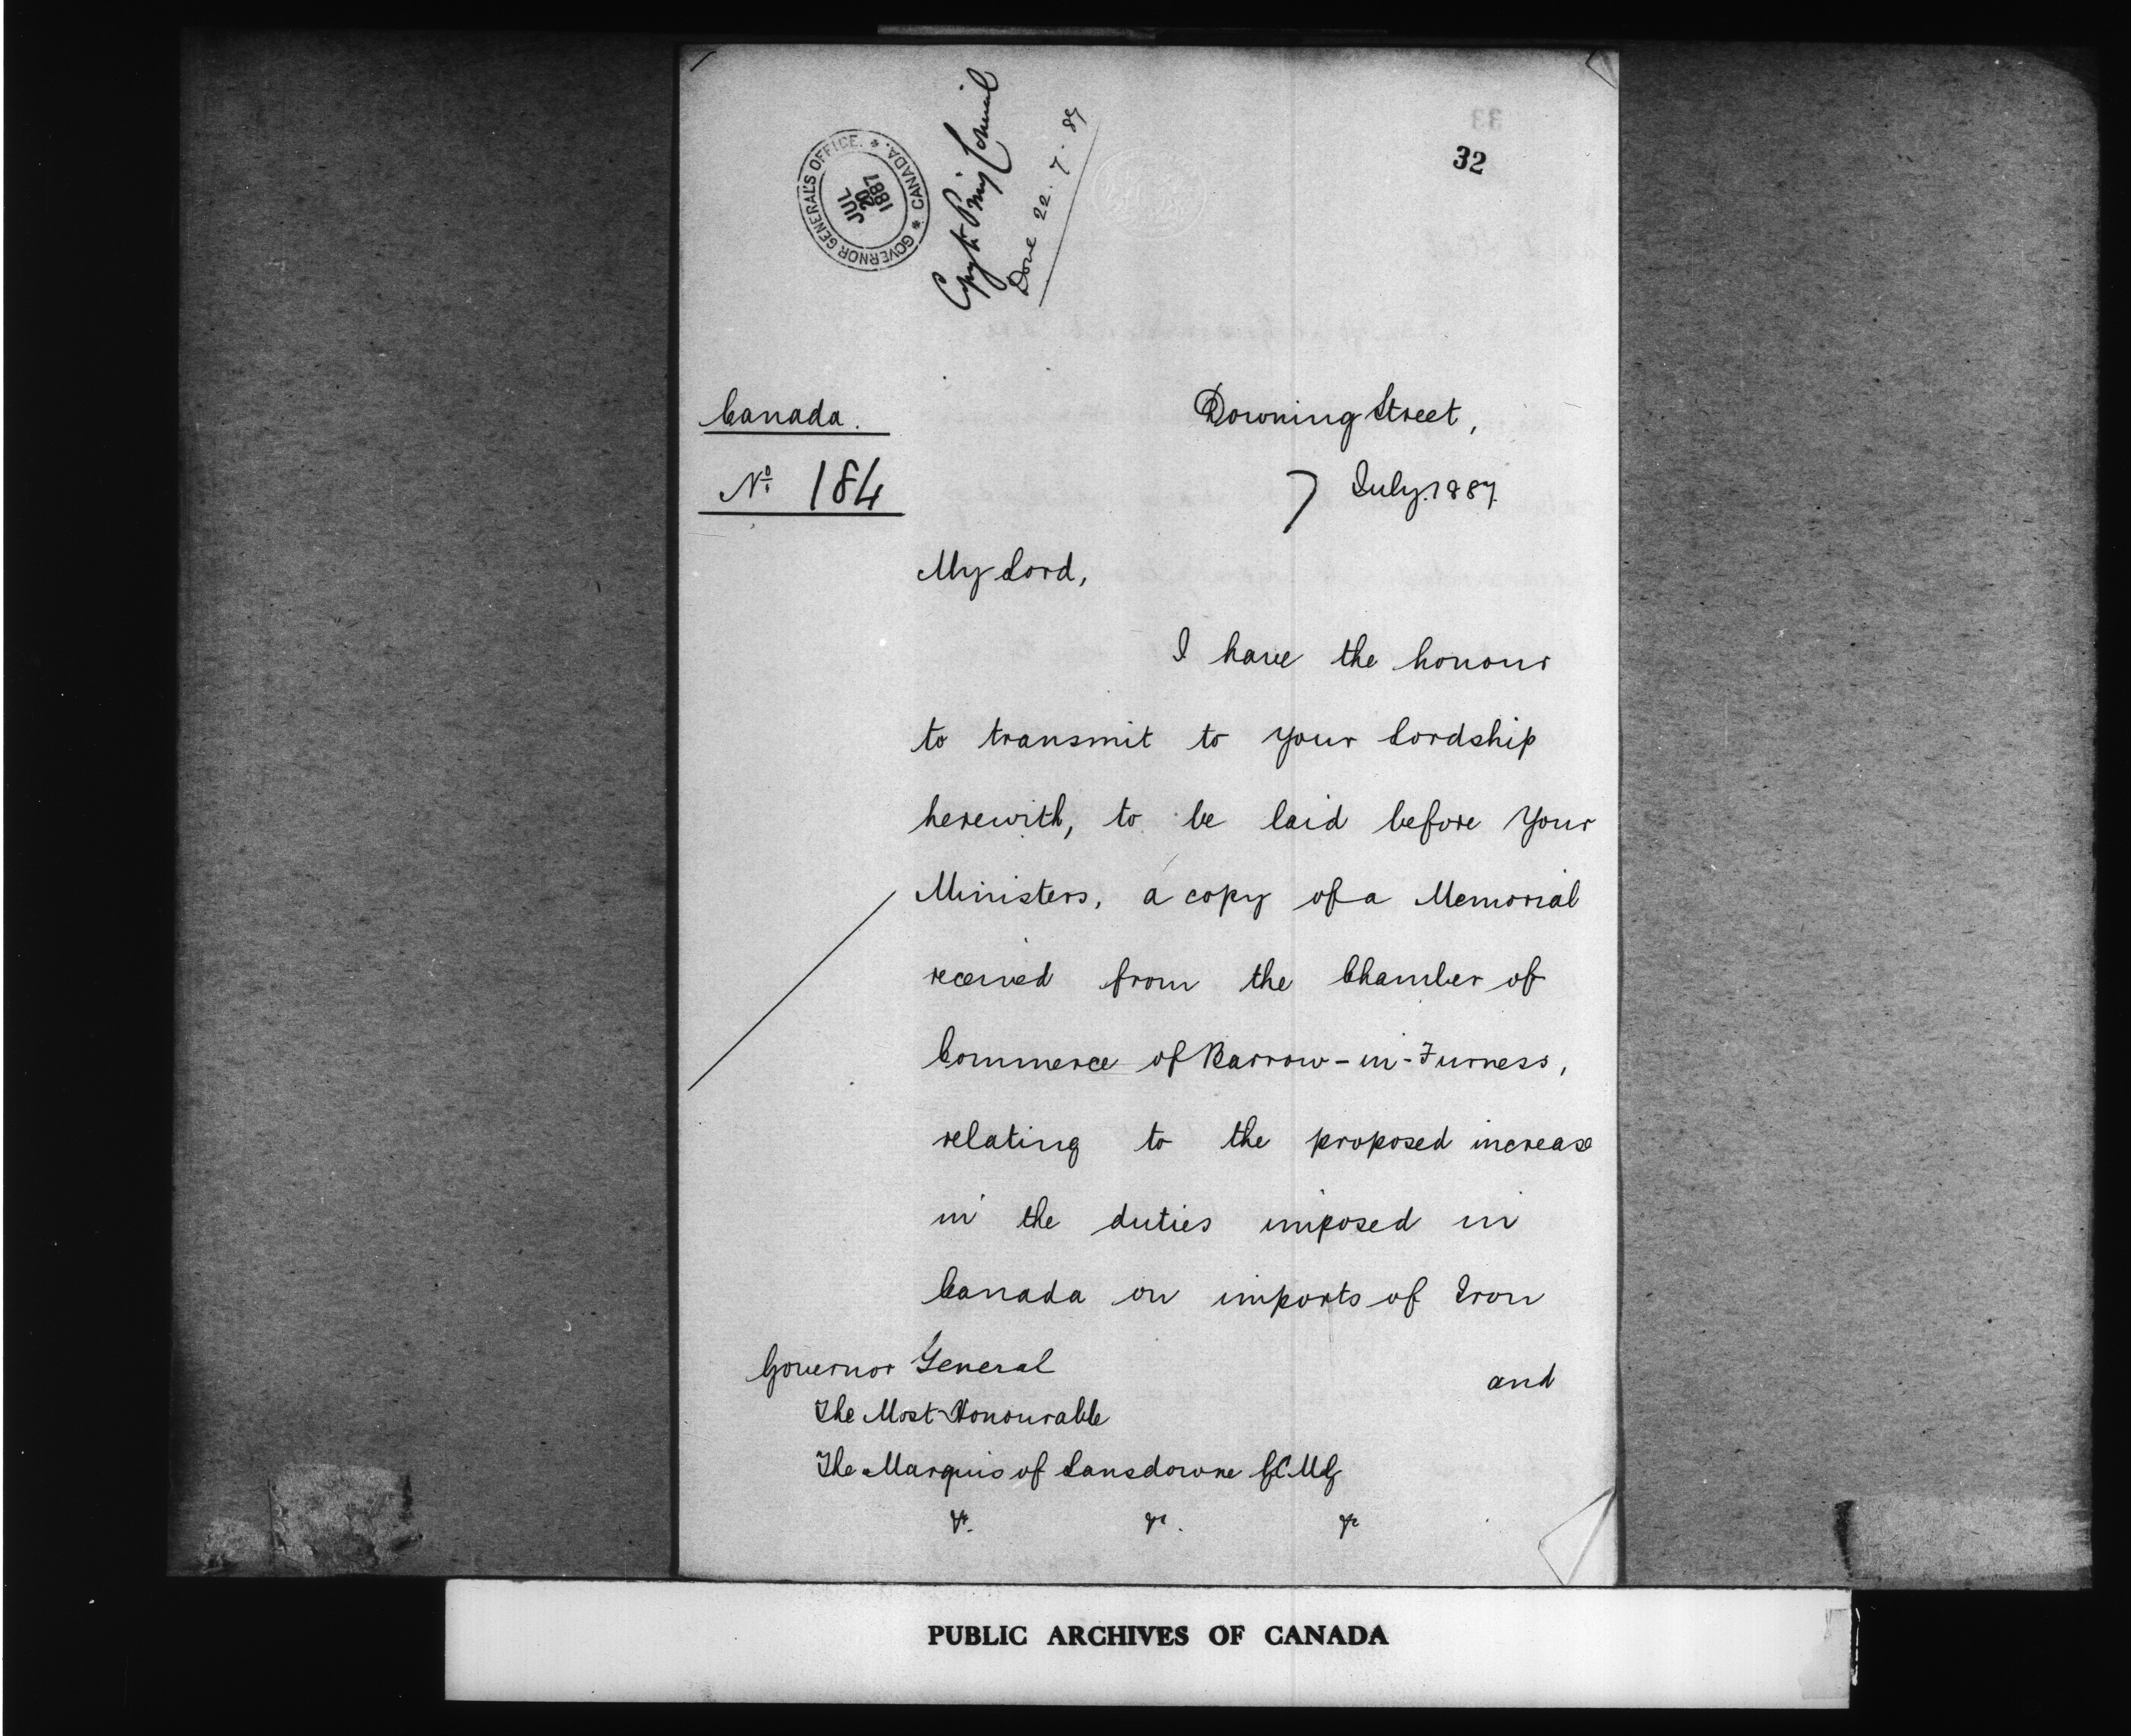 GOVERNOR GENERAL'S OFFICE. * CANADA. *
JUL
20
1887
Copy to Privy Council
Done 22.7.87
33
32
Canada.
Downing Street,
No. 184
7 July 1887.
My Lord,
I have the honour
to transmit to your Lordship
herewith, to be laid before your
Ministers, a copy of a Memorial
received from the Chamber of
Commerce of Barrow-in-Furness,
relating to the proposed increase
in the duties imposed in
Canada on imports of Iron
and
Governor General
The Most Honourable
The Marquis of Lansdowne G.C.M.G
&c. &c. &c
PUBLIC ARCHIVES OF CANADA